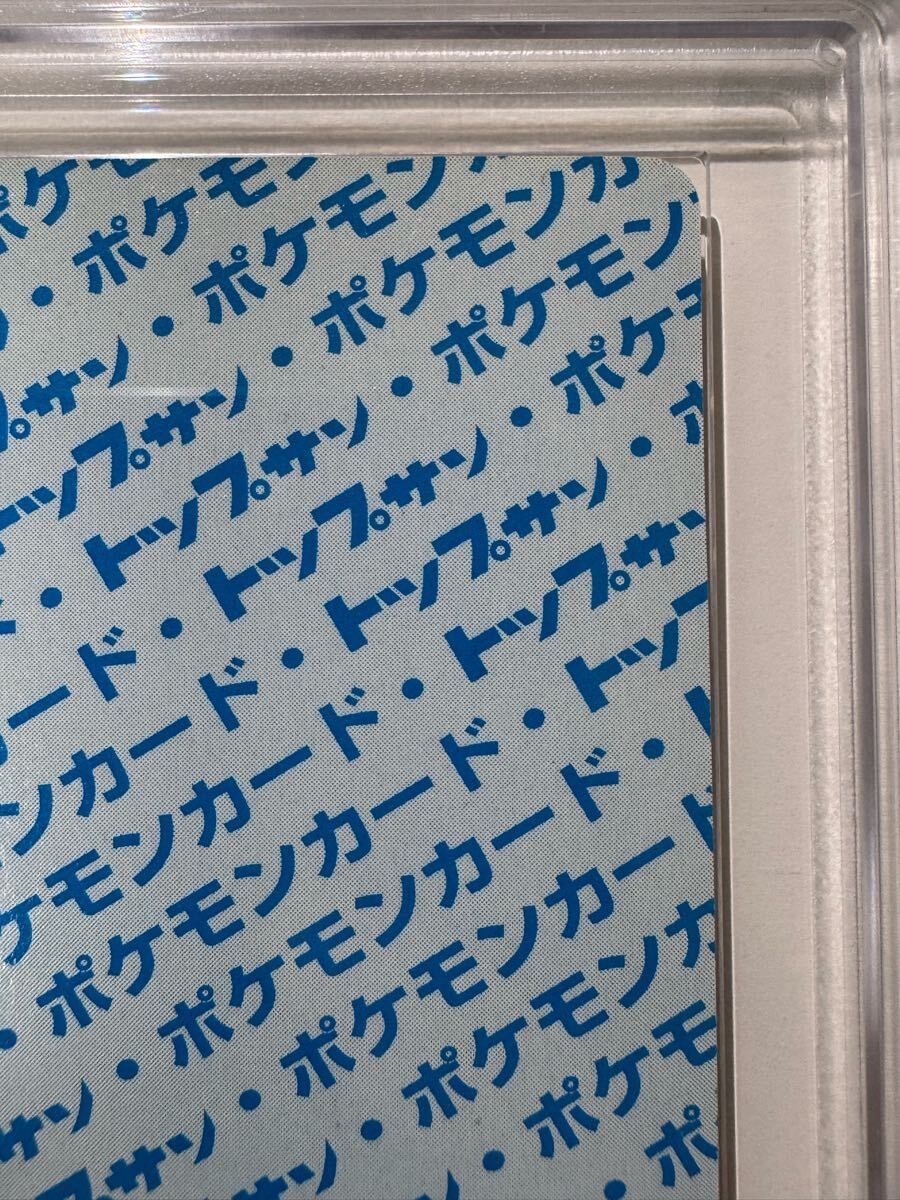 ポケモ
・ポケモン
プサン・ポケモン
トップサン・ポケモンカ
・トップサン・ポケモン
ード・トップサン・ポケ
カード・トップサン・ポ
ンカード・トップサン
ケモンカード・トッ
・ポケモンカード・
サン・ポケモンカード
プサン・ポケモンカ
サン・ポケモ
・ポ